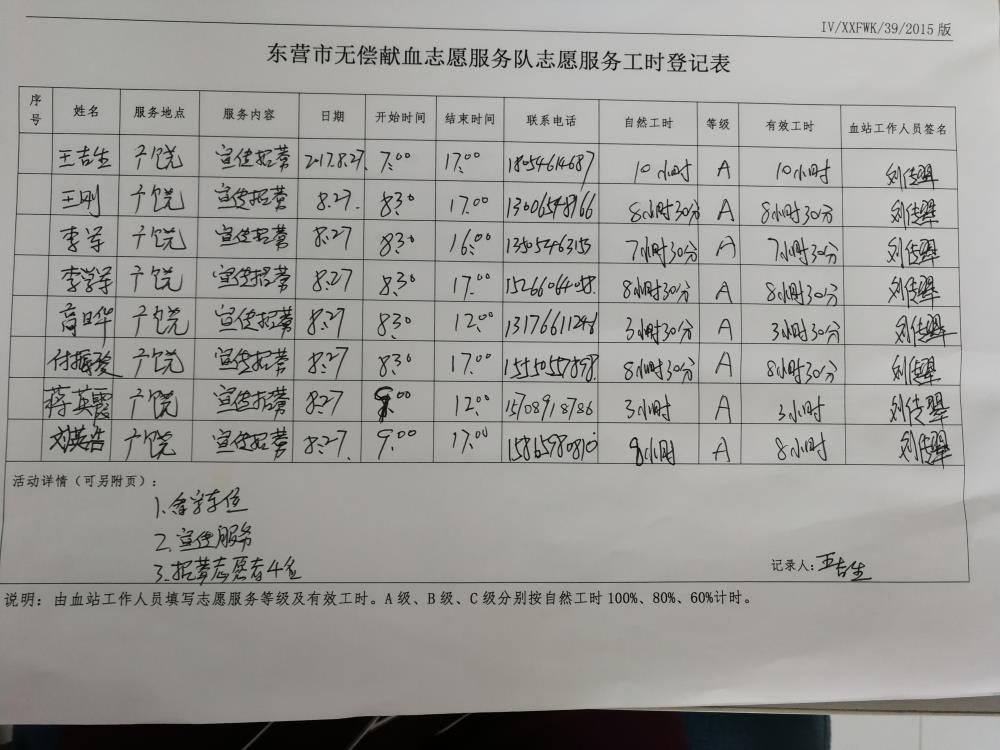 IV/XXFWK/39/2015 版
东营市无偿献血志愿服务队志愿服务工时登记表
序号 姓名 服务地点 服务内容 日期 开始时间 结束时间 联系电话 自然工时 等级 有效工时 血站工作人员签名
王吉生 广饶 宣传招募 2017.8.27. 7:00 17:00 18054614687 10小时 A 10小时
王刚 广饶 宣传招募 8.27. 8:30 17:00 13006548766 8小时30分 A 8小时30分
李军 广饶 宣传招募 8.27 8:30 16:00 13505463153 7小时30分 A 7小时30分
李学军 广饶 宣传招募 8.27 8:30 17:00 8小时30分 A 8小时30分
高日华 广饶 宣传招募 8.27 8:30 12:00 3小时30分 A 3小时30分
广饶 宣传招募 8.27 8:30 17:00 8小时30分 A 8小时30分
蒋英霞 广饶 宣传招募 8.27 9:00 12:00 15708918786 3小时 A 3小时
刘英浩 广饶 宣传招募 8.27. 9:00 17:00 15865980810 8小时 A 8小时
活动详情（可另附页）：
1.
2.宣传服务
3.招募志愿者4名
记录人：王吉生
说明：由血站工作人员填写志愿服务等级及有效工时。A 级、B 级、C 级分别按自然工时 100%、80%、60%计时。